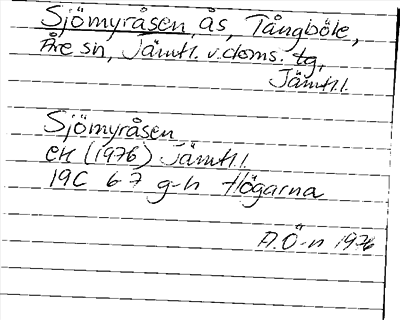 Sjömyråsen, ås, Tångböle,
Åre sn, Jämtl. v. doms. tg,
Jämtl.l.
Sjömyråsen
ek (1976) Jämtl.l.
19C 6-7 g-h Högarna
A.Ö-n 1976